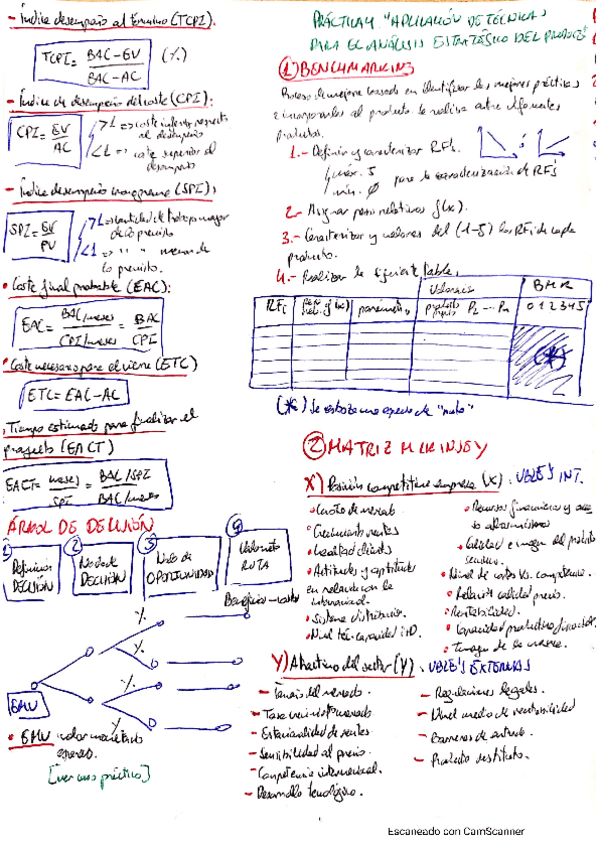 - Índice desempeño al término (TCPI).
TCPI = BAC-EV / BAC-AC (%)
- Índice de desempeño del coste (CPI):
CPI = EV / AC
>1 => coste inferior respecto
al desempeño
<1 => coste superior al
desempeño
- Índice desempeño cronograma (SPI):
SPI = EV / PV
>1 => cantidad de trabajo mayor
de lo previsto
<1 => " " menor de
lo previsto.
• Coste final probable (EAC):
EAC = BAC/meses / CPI/meses = BAC / CPI
• Coste necesario para el cierre (ETC)
ETC = EAC-AC
. Tiempo estimado para finalizar el
proyecto (EACT)
EACT = meses / SPI = BAC/SPI / BAC/meses
ÁRBOL DE DECISIÓN
1 Definición DECISIÓN
2 Nodo de DECISIÓN
3 Nodo de OPORTUNIDAD
4 Valor neto RUTA
Beneficios - costes
%
%
%
%
EMV
• EMV valor monetario
esperado.
[ver caso práctico]
PRÁCTICA 4 "APLICACIÓN DE TÉCNICAS
PARA EL ANÁLISIS ESTRATÉGICO DEL PRODUCTO"
① BENCHMARKING
Proceso de mejora basado en identificar las mejores prácticas
e incorporarlas al producto. Se realiza entre diferentes
productos.
1.- Definir y caracterizar RFs.
máx. 5
mín. 0
para la caracterización de RF's
2.- Asignar pesos relativos f(x).
3.- Caracterizar y valorar del (1-5) los RFi de cada
producto.
4.- Realizar la siguiente tabla.
Valoración
BMR
RFi
peso rel. f(x)
parámetros
producto propio P2 ... Pn
0 1 2 3 4 5
(*)
(*) Se esboza una especie de "ruta"
② MATRIZ MCKINSEY
X) Posición competitiva empresa (X): VBLES INT.
• Cuota de mercado
• Crecimiento ventas
• Lealtad clientes
• Actitudes y aptitudes
en relación con la
• Sistema distribución.
• Nivel téc-capacidad I+D.
• Recursos financieros y
• Calidad e imagen del producto
servicio.
• Nivel de costes vs. competencia.
• Relación calidad precio.
• Rentabilidad.
• Capacidad productiva
• Imagen de la marca.
Y) Atractivo del sector (Y): VBLE'S EXTERNAS
- Tamaño del mercado.
- Tasa crecimiento mercado
- Estacionalidad de ventas
- Sensibilidad al precio.
- Competencia internacional.
- Desarrollo tecnológico.
- Regulaciones legales.
- Nivel medio de rentabilidad
- Barreras de entrada.
- Producto sustituto.
Escaneado con CamScanner